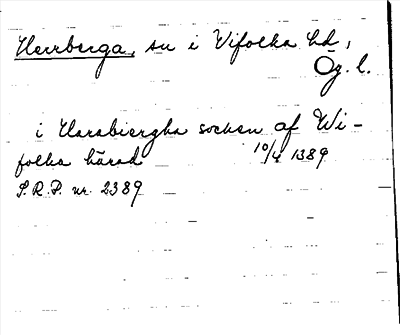 Herrberga, sn i Vifolka hd,
Ög. l.
i Harabiergha socken af Wi-
folka härad 10/4 1389
S.R.P. nr. 2389